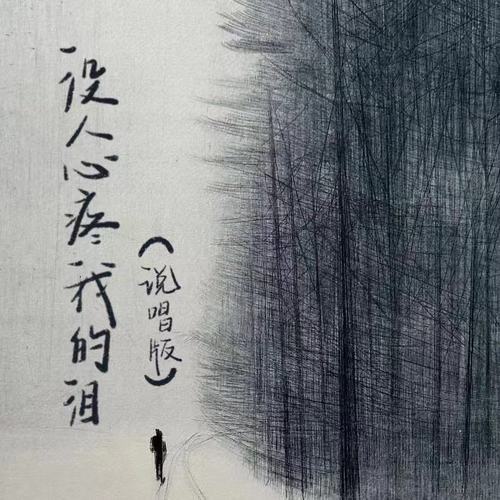 没人心疼我的泪
（说唱版）